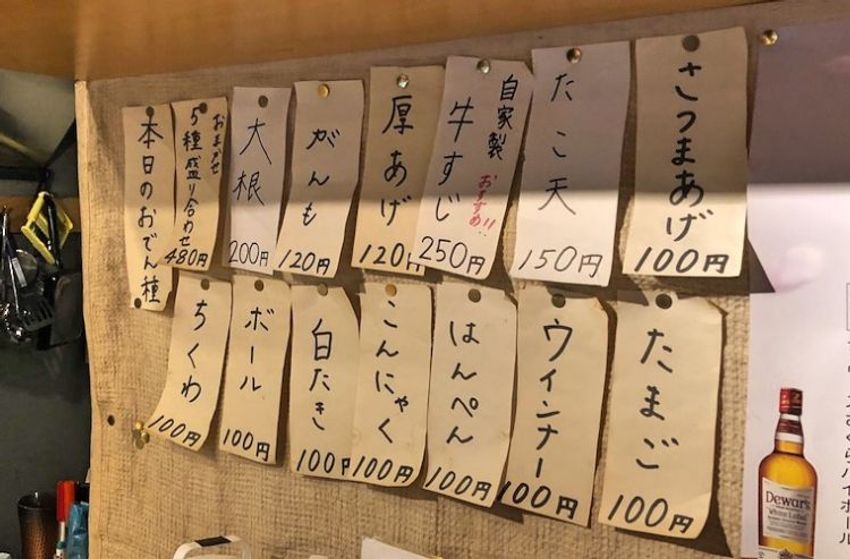 本日のおでん種
おまかせ
5種盛り合わせ
480円
大根
200円
がんも
120円
厚あげ
120円
自家製
牛すじ
おすすめ!!
250円
たこ天
150円
さつまあげ
100円
ちくわ
100円
ボール
100円
白たき
100円
こんにゃく
100円
はんぺん
100円
ウインナー
100円
たまご
100円
Dewar's
White Label
ハイボール